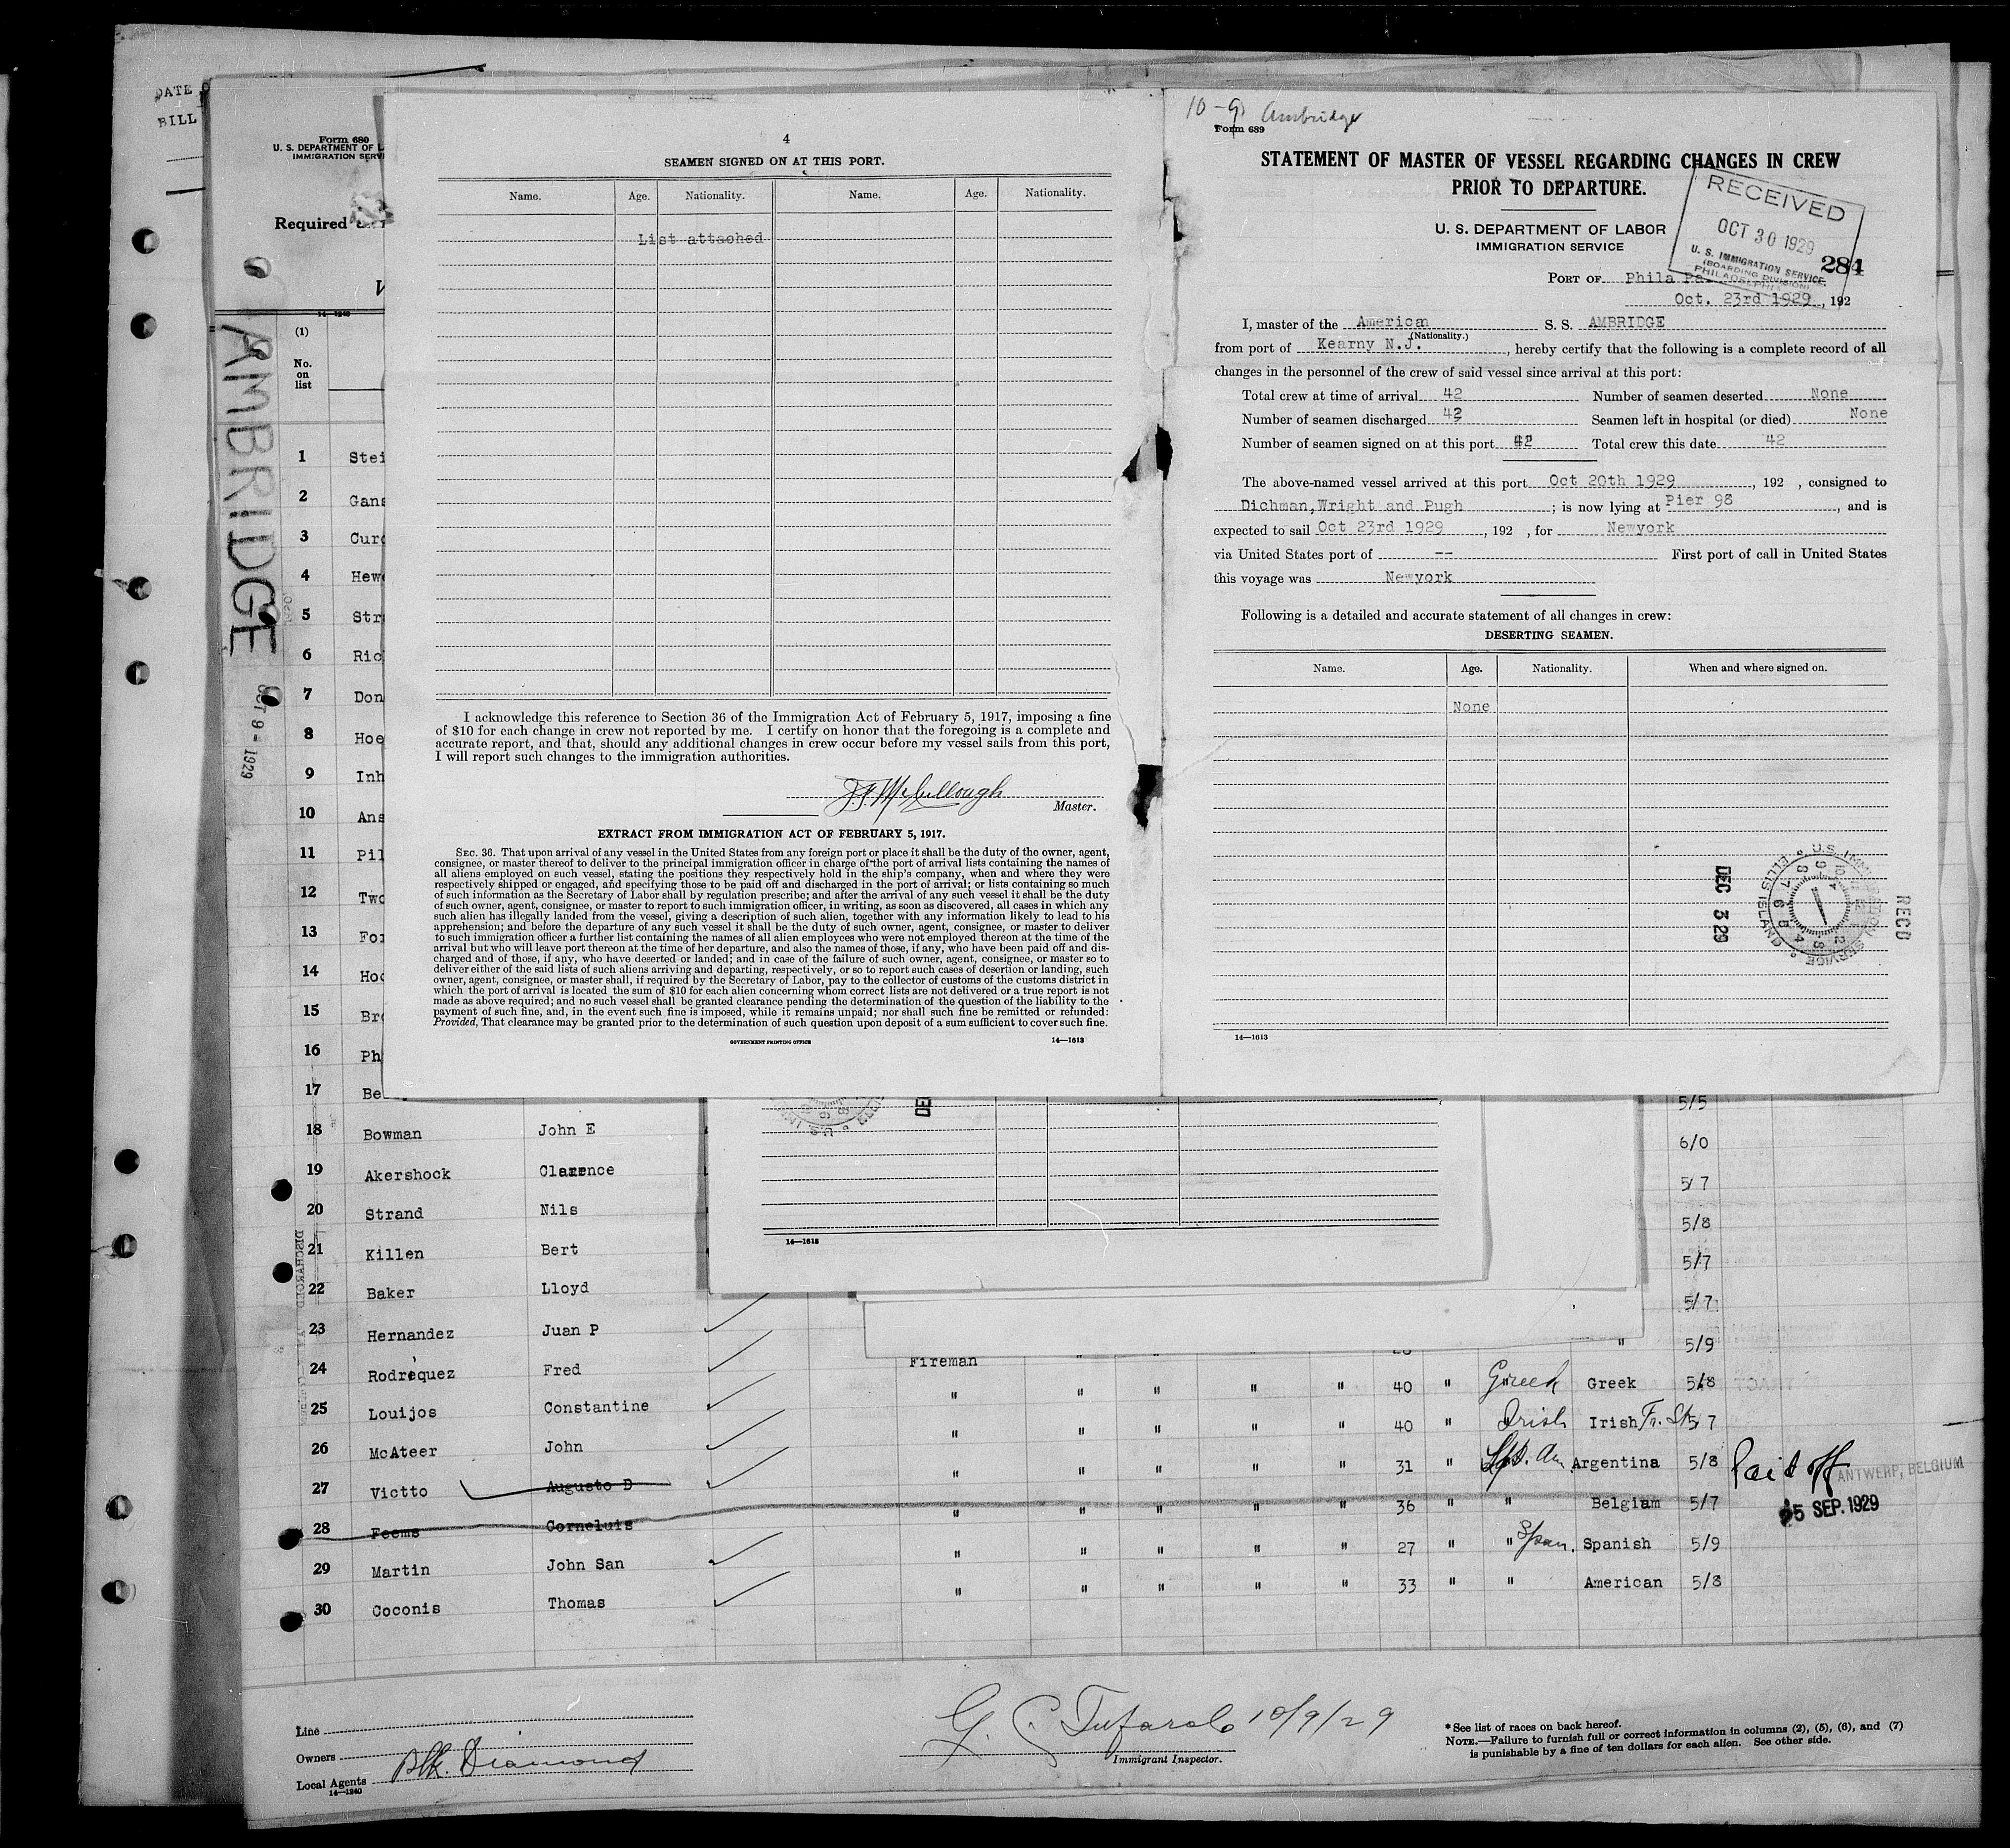 DATE O
BILL
Form 680
U. S. DEPARTMENT OF L
IMMIGRATION SERVI
Required
14—1240
(1)
No.
on
list
AMBRIDGE
OCT 9 - 1929
1 Stei
2 Gans
3 Curd
4 Hewe
5 Str
6 Ric
7 Don
8 Hoe
9 Inh
10 Ans
11 Pil
12 Two
13 For
14 Hod
15 Bro
16 Ph
17 Be
4
SEAMEN SIGNED ON AT THIS PORT.
Name. Age. Nationality. Name. Age. Nationality.
List attached
I acknowledge this reference to Section 36 of the Immigration Act of February 5, 1917, imposing a fine
of $10 for each change in crew not reported by me. I certify on honor that the foregoing is a complete and
accurate report, and that, should any additional changes in crew occur before my vessel sails from this port,
I will report such changes to the immigration authorities.
J.F. McCullough
Master.
EXTRACT FROM IMMIGRATION ACT OF FEBRUARY 5, 1917.
SEC. 36. That upon arrival of any vessel in the United States from any foreign port or place it shall be the duty of the owner, agent,
consignee, or master thereof to deliver to the principal immigration officer in charge of the port of arrival lists containing the names of
all aliens employed on such vessel, stating the positions they respectively hold in the ship's company, when and where they were
respectively shipped or engaged, and specifying those to be paid off and discharged in the port of arrival; or lists containing so much
of such information as the Secretary of Labor shall by regulation prescribe; and after the arrival of any such vessel it shall be the duty
of such owner, agent, consignee, or master to report to such immigration officer, in writing, as soon as discovered, all cases in which any
such alien has illegally landed from the vessel, giving a description of such alien, together with any information likely to lead to his
apprehension; and before the departure of any such vessel it shall be the duty of such owner, agent, consignee, or master to deliver
to such immigration officer a further list containing the names of all alien employees who were not employed thereon at the time of the
arrival but who will leave port thereon at the time of her departure, and also the names of those, if any, who have been paid off and dis-
charged and of those, if any, who have deserted or landed; and in case of the failure of such owner, agent, consignee, or master so to
deliver either of the said lists of such aliens arriving and departing, respectively, or so to report such cases of desertion or landing, such
owner, agent, consignee, or master shall, if required by the Secretary of Labor, pay to the collector of customs of the customs district in
which the port of arrival is located the sum of $10 for each alien concerning whom correct lists are not delivered or a true report is not
made as above required; and no such vessel shall be granted clearance pending the determination of the question of the liability to the
payment of such fine, and, in the event such fine is imposed, while it remains unpaid; nor shall such fine be remitted or refunded:
Provided, That clearance may be granted prior to the determination of such question upon deposit of a sum sufficient to cover such fine.
GOVERNMENT PRINTING OFFICE 14—1613
10-9 Ambridge
Form 689
STATEMENT OF MASTER OF VESSEL REGARDING CHANGES IN CREW
PRIOR TO DEPARTURE.
U. S. DEPARTMENT OF LABOR
IMMIGRATION SERVICE
RECEIVED
OCT 30 1929
U. S. IMMIGRATION SERVICE
(BOARDING DIVISION)
PHILADELPHIA
284
PORT OF Phila Pa.
Oct. 23rd 1929, 192
I, master of the American S. S. AMBRIDGE
(Nationality.)
from port of Kearny N.J., hereby certify that the following is a complete record of all
changes in the personnel of the crew of said vessel since arrival at this port:
Total crew at time of arrival 42 Number of seamen deserted None
Number of seamen discharged 42 Seamen left in hospital (or died) None
Number of seamen signed on at this port 42 Total crew this date 42
The above-named vessel arrived at this port Oct 20th 1929, 192 , consigned to
Dichman, Wright and Pugh; is now lying at Pier 98, and is
expected to sail Oct 23rd 1929, 192 , for Newyork
via United States port of -- First port of call in United States
this voyage was Newyork
Following is a detailed and accurate statement of all changes in crew:
DESERTING SEAMEN.
Name. Age. Nationality. When and where signed on.
None
U.S. IMMIGRATION SERVICE ELLIS ISLAND
DEC 3 29
RECD
14—1613
5/5
18 Bowman John E 6/0
19 Akershock Clarence 5/7
20 Strand Nils 5/8
21 Killen Bert 5/7
22 Baker Lloyd 5/7
14—1613
23 Hernandez Juan P " 5/9
24 Rodrequez Fred Fireman " " " " 40 " Greek Greek 5/8
25 Louijos Constantine " " " " " 40 " Irish Irish Fr. St 5/7
26 McAteer John " " " " " 31 " Sp. Am. Argentina 5/8
27 Victto Augusto D " " " " " 36 " " Belgiam 5/7
Paid off ANTWERP, BELGIUM
5 SEP. 1929
28 Feems Corneluis " " " " " 27 " " Span. Spanish 5/9
29 Martin John San " " " " " 33 " " American 5/8
30 Coconis Thomas
Line
Owners
Local Agents Blk. Diamond
14—1240
G. S. Tufarolo 10/9/29
Immigrant Inspector.
*See list of races on back hereof.
NOTE.—Failure to furnish full or correct information in columns (2), (5), (6), and (7)
is punishable by a fine of ten dollars for each alien. See other side.